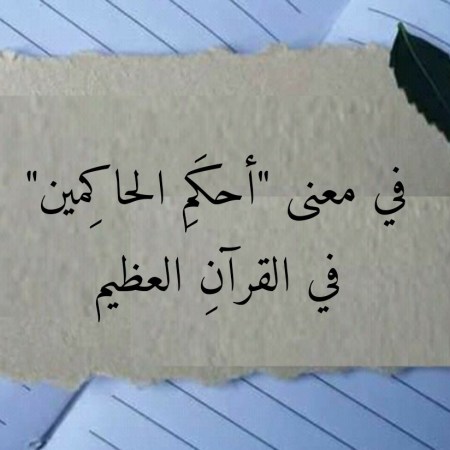 في معنى "أحكَمِ الحاكِمين"
في القرآنِ العظيم